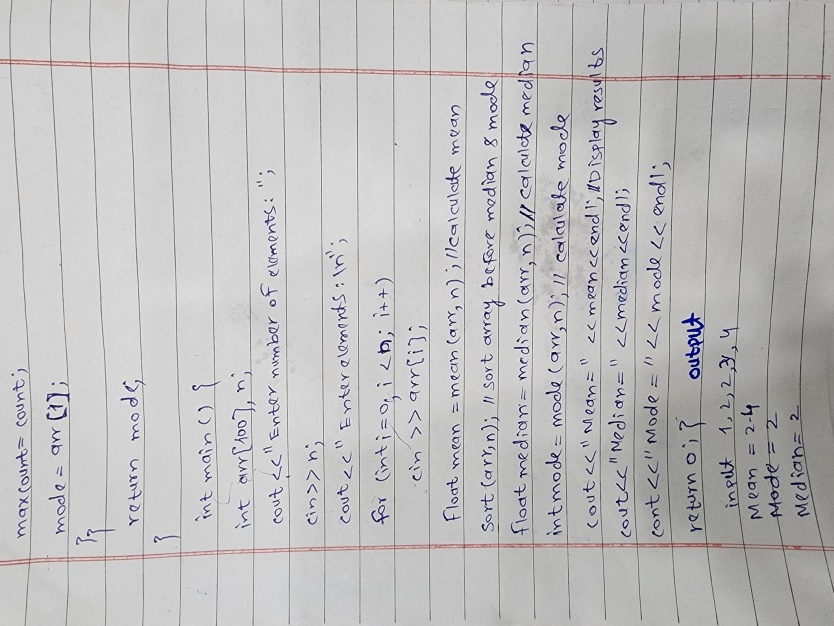 maxcount= count;
mode = arr[i];
}}
return mode;
}
int main() {
int arr[100], n;
cout<<"Enter number of elements: ";
cin>> n;
cout<<"Enter elements: \n";
for (int i=0; i<n; i++)
cin >> arr[i];
Float mean = mean(arr, n); //calculate mean
Sort(arr,n); // sort array before median & mode
float median= median(arr, n); // calculate median
int mode= mode (arr,n); // calculate mode
cout<<"Mean=" <<mean<<endl; //Display results
cout<<"Median=" <<median<<endl;
cout<<"Mode =" << mode << endl;
return 0; } output
input 1, 2, 2, 3, 4
Mean = 2.4
Mode = 2
Median= 2